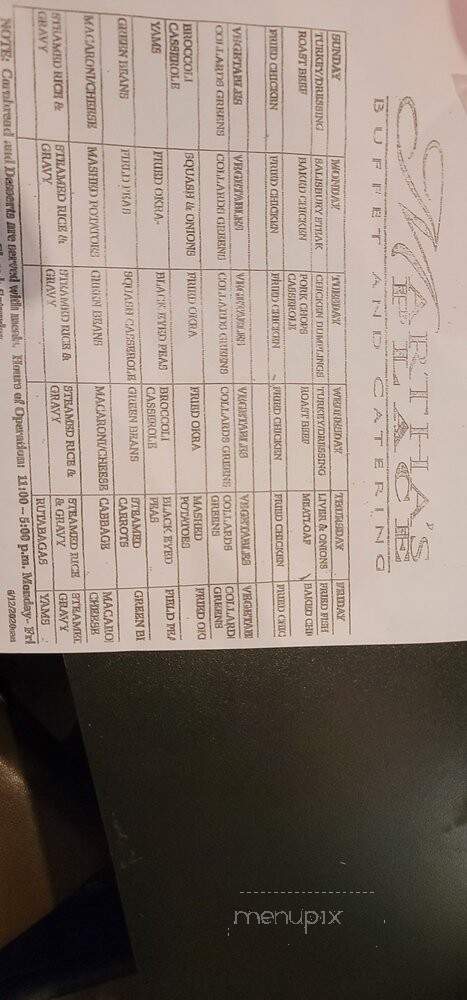 MARTHA'S
PLACE
BUFFET AND CATERING
SUNDAY MONDAY TUESDAY WEDNESDAY THURSDAY FRIDAY
TURKEY/DRESSING SALISBURY STEAK CHICKEN DUMPLINGS TURKEY/DRESSING LIVER & ONIONS FRIED FISH
ROAST BEEF BAKED CHICKEN PORK CHOPS ROAST BEEF MEATLOAF BAKED CHI
CASSEROLE
FRIED CHICKEN FRIED CHICKEN FRIED CHICKEN FRIED CHICKEN FRIED CHICKEN FRIED CHIC
VEGETABLES VEGETABLES VEGETABLES VEGETABLES VEGETABLES VEGETABL
COLLARDS GREENS COLLARDS GREENS COLLARDS GREENS COLLARDS GREENS COLLARDS COLLARD
GREENS GREENS
BROCCOLI SQUASH & ONIONS FRIED OKRA FRIED OKRA MASHED FRIED OK
CASSEROLE POTATOES
YAMS FRIED OKRA BLACK EYED PEAS BROCCOLI BLACK EYED FIELD PEA
CASSEROLE PEAS
GREEN BEANS FIELD PEAS SQUASH CASSEROLE GREEN BEANS STEAMED GREEN BE
CARROTS
MACARONI/CHEESE MASHED POTATOES GREEN BEANS MACARONI/CHEESE CABBAGE MACARO
CHEESE
STEAMED RICE & STEAMED RICE & STEAMED RICE & STEAMED RICE & STEAMED RICE STEAMED
GRAVY GRAVY GRAVY GRAVY & GRAVY GRAVY
RUTABAGAS YAMS
NOTE: Cornbread and Desserts are served with meals. Hours of Operation: 11:00 – 5:00 p.m. Monday- Fri
menupix